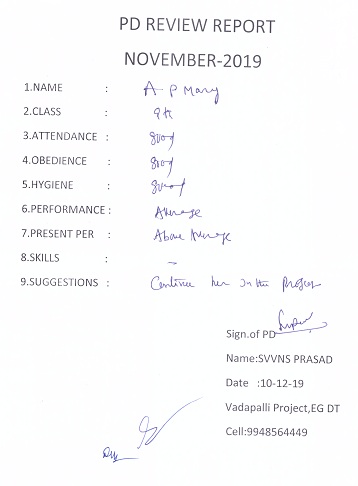 PD REVIEW REPORT
NOVEMBER-2019
1.NAME : A P Mary
2.CLASS : 9th
3.ATTENDANCE : good
4.OBEDIENCE : good
5.HYGIENE : good
6.PERFORMANCE : Average
7.PRESENT PER : Above Average
8.SKILLS : –
9.SUGGESTIONS : Continue her in the Project
Sign.of PD
Name:SVVNS PRASAD
Date :10-12-19
Vadapalli Project,EG DT
Cell:9948564449